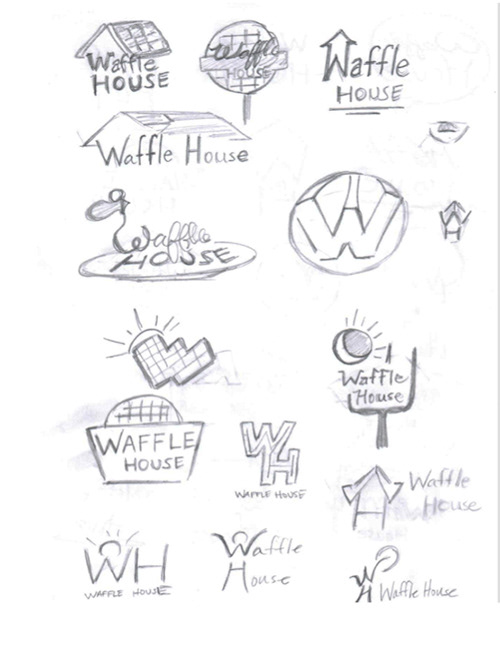 Waffle
HOUSE
Waffle
HOUSE
Waffle
HOUSE
Waffle House
Waffle
HOUSE
W
W
H
Waffle
House
WAFFLE
HOUSE
WH
WAFFLE HOUSE
H
Waffle
House
WH
WAFFLE HOUSE
Waffle
House
W
H Waffle House